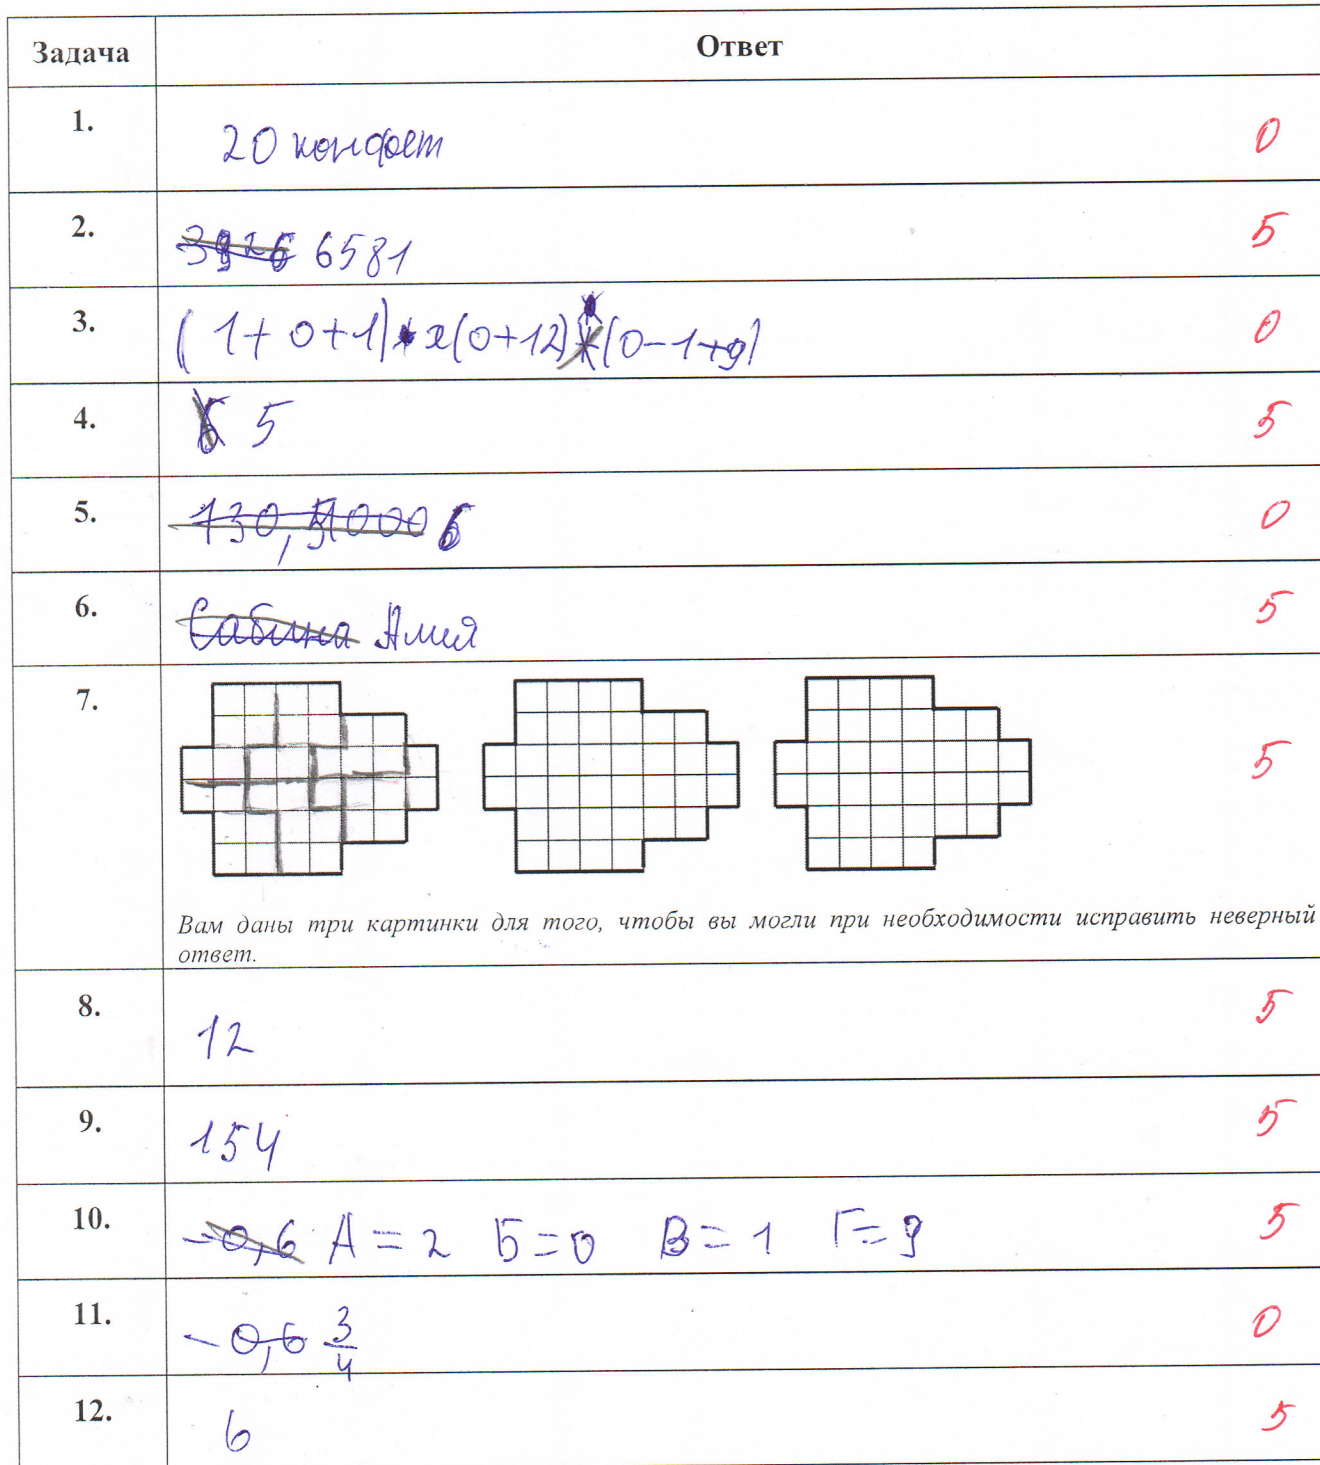 Задача Ответ
1. 20 конфет 0
2. 3926 6581 5
3. (1+0+1)*x(0+12)*(0-1+9) 0
4. 5 5
5. 6 0
6. Сабина Амия 5
7. 5
Вам даны три картинки для того, чтобы вы могли при необходимости исправить неверный
ответ.
8. 12 5
9. 154 5
10. -0,6 А=2 Б=0 В=1 Г=9 5
11. -0,6 3/4 0
12. 6 5